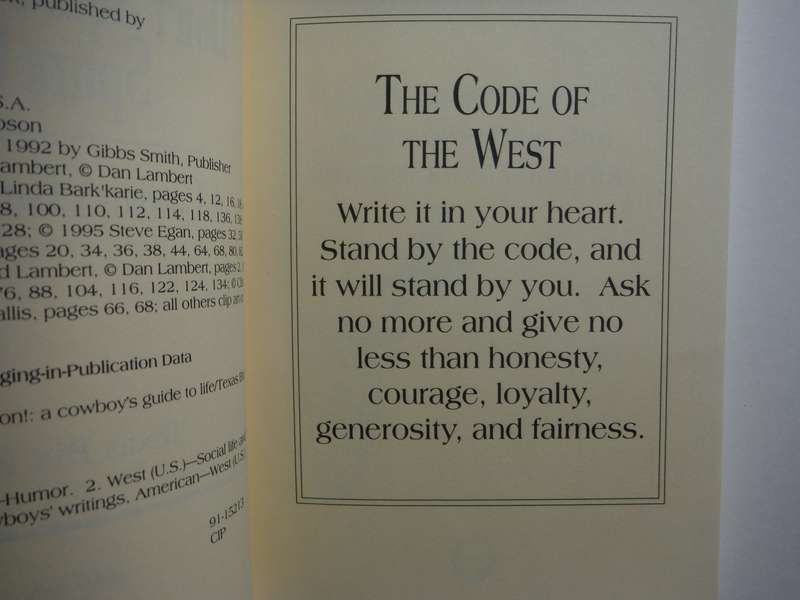 published by
S.A.
1992 by Gibbs Smith, Publisher
Lambert, © Dan Lambert
Linda Bark'karie, pages 4, 12, 16,
8, 100, 110, 112, 114, 118, 136,
28; © 1995 Steve Egan, pages 32,
ages 20, 34, 36, 38, 44, 64, 68, 80,
d Lambert, © Dan Lambert, pages 2,
76, 88, 104, 116, 122, 124, 134; ©
allis, pages 66, 68; all others clip art
ging-in-Publication Data
on!: a cowboy's guide to life/Texas
—Humor. 2. West (U.S.)—Social life and
boys' writings, American—West (U.S.
91-15213
CIP
THE CODE OF
THE WEST
Write it in your heart.
Stand by the code, and
it will stand by you. Ask
no more and give no
less than honesty,
courage, loyalty,
generosity, and fairness.